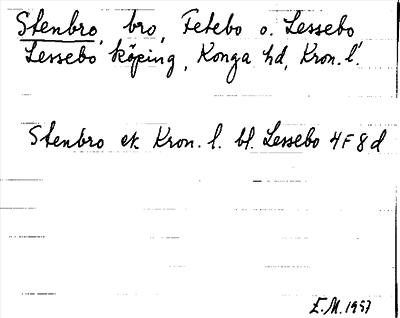 Stenbro, bro, Fetebo o. Lessebo
Lessebo köping, Konga hd, Kron. l.
Stenbro ek Kron. l. bl. Lessebo 4F8d
E.M. 1957